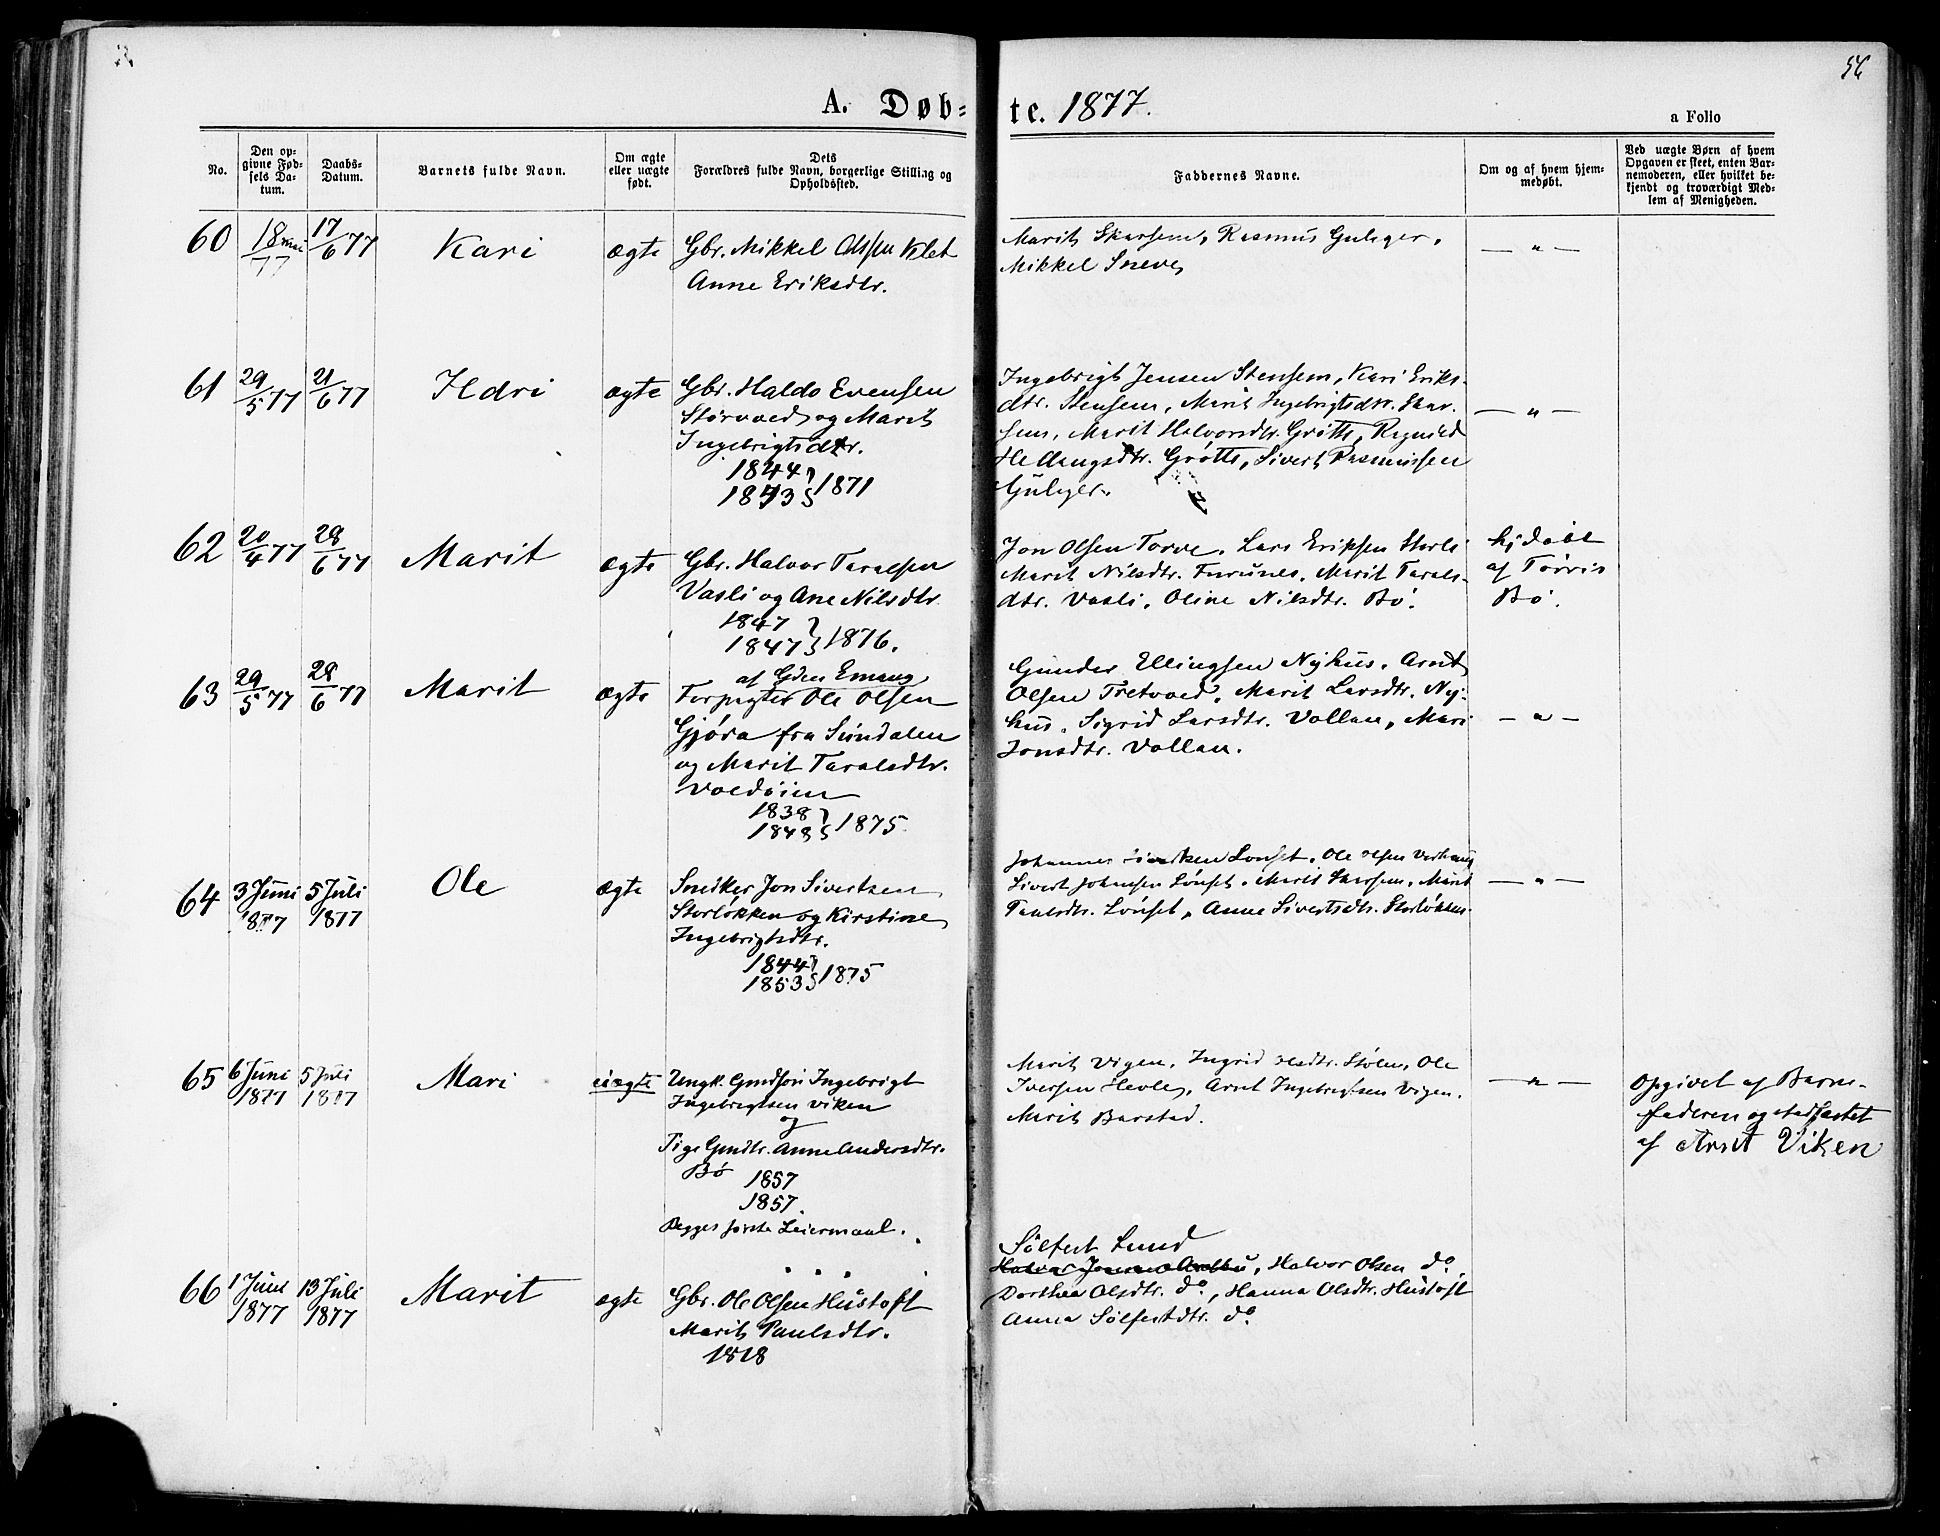 56
A. Døb= te. 1877.
a Folio
No.
Den op=
givne Fød=
sels Da=
tum.
Daabs=
Datum.
Barnets fulde Navn.
Om ægte
eller uægte
født.
Dets
Forældres fulde Navn, borgerlige Stilling og
Opholdssted.
Faddernes Navne.
Om og af hvem hjem=
medøbt.
Ved uægte Børn af hvem
Opgaven er skeet, enten Bar=
nemoderen, eller hvilket be=
kjendt og troværdigt Med=
lem af Menigheden.
60 18 mai 77 17/6 77 Kari ægte
Gbr. Mikkel Olssen Klet
Anne Eriksdtr.
Marit Skarsem, Rasmus Gulager,
Mikkel Sneve,
— " —
61 29/5 77 21/6 77 Ildri ægte
Gbr. Haldo Evensen
Størvoed og Marit
Ingebrigtsdtr.
1844
1843 } 1871
Ingebrigt Jensen Stensem, Kari Eriks-
dtr. Stensem, Marit Ingebrigtsdtr. Skar-
sem, Marit Halvorsdtr. Grøtte, Ragnild
Grøtte, Sivert Rasmussen
Gulager.
— " —
62 20/4 77 28/6 77 Marit ægte
Gbr. Halvor Taralsen
Vasli og Ane Nilsdtr.
1847
1847 } 1876.
Jon Olsen Torve, Lars Eriksen Storli
Marit Nilsdtr. Furunes, Marit Tarals-
dtr. Vasli, Oline Nilsdtr. Bø.
hjdøbt
af Tørris
Bø.
63 29/5 77 28/6 77 Marit ægte
af Gden Emaus
Forpagter Ole Olsen
Gjøra fra Sundalen
og Marit Taralsdtr.
Voldøien
1838
1848 } 1875.
Gunder Ellingsen Nyhus, Arnt
Olsen Tretvoed, Marit Larsdtr. Ny-
hus, Sigrid Larsdtr. Vollan, Mari
Jonsdtr. Vollan.
— " —
64 3 Juni 1877 5 Juli 1877 Ole ægte
Snedker Jon Sivertsen
Storløkken og Kirstine
Ingebrigtsdtr.
1844
1853 } 1875
Johannes Lønset, Ole Olsen
Sivert Johansen Lønset, Marit Skarsem, Marit
Lønset, Anne Sivertsdtr. Storløkken.
— " —
65 6 Juni 1877 5 Juli 1877 Mari uægte
Ungk. Gmdsøn Ingebrigt
Ingebrigtsen Viken
og
Pige Gmdtr. Anne Andersdtr.
Bø 1857
1857.
Begges første Leiermaal.
Marit Vigen, Ingrid Olsdtr. Stølen, Ole
Iversen Hevle, Arnt Ingebrigtsen Vigen,
Marit Barstad.
— " —
Opgivet af Barne-
faderen og stadfæstet
af Arnt Viken
66 1 Juni 1877 13 Juli 1877 Marit ægte
Gbr. Ole Olsen Hustoft
Marit Paulsdtr.
1818
Sølfest Lund
Halvor Olsen do.
Dorthea Olsdtr. do, Hanna Olsdtr. Hustoft
Anna Sølfestdtr. do.